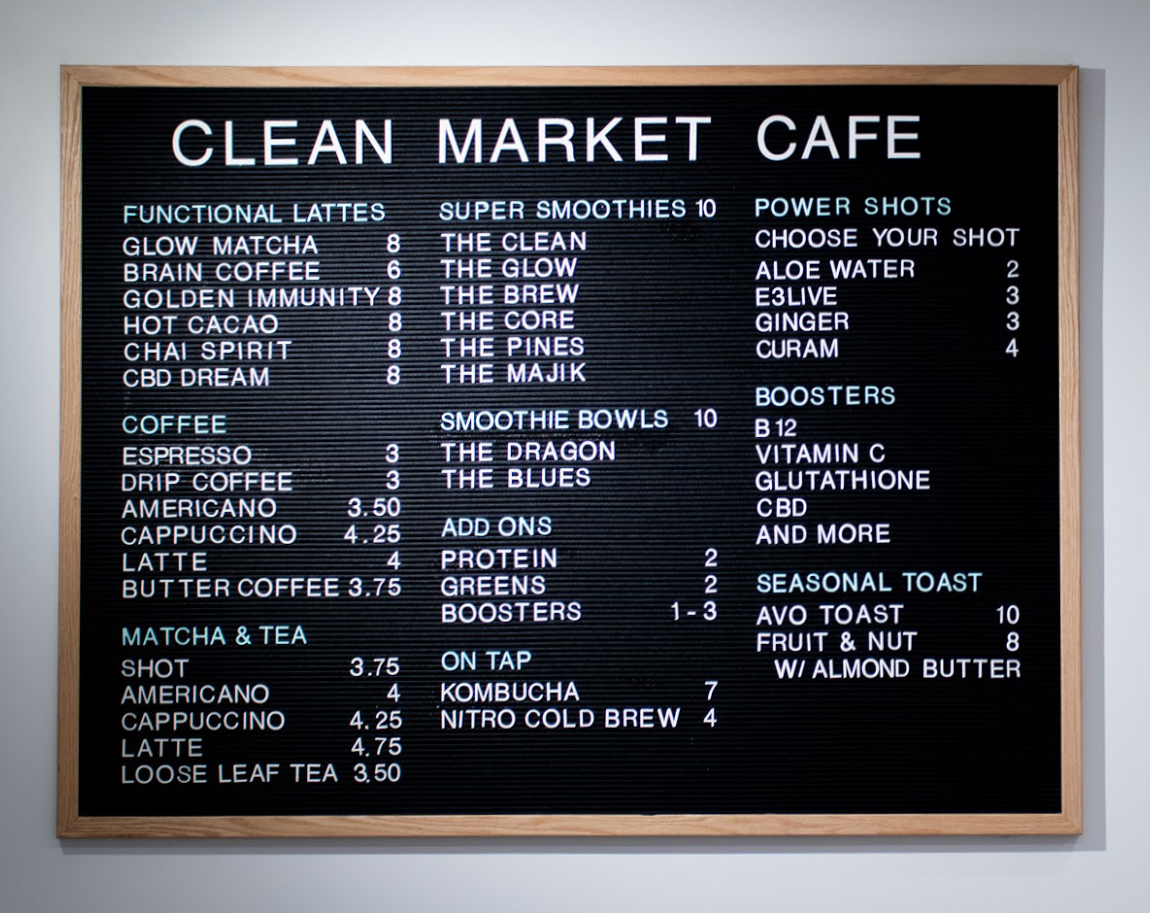 CLEAN MARKET CAFE
FUNCTIONAL LATTES
GLOW MATCHA 8
BRAIN COFFEE 6
GOLDEN IMMUNITY 8
HOT CACAO 8
CHAI SPIRIT 8
CBD DREAM 8
COFFEE
ESPRESSO 3
DRIP COFFEE 3
AMERICANO 3.50
CAPPUCCINO 4.25
LATTE 4
BUTTER COFFEE 3.75
MATCHA & TEA
SHOT 3.75
AMERICANO 4
CAPPUCCINO 4.25
LATTE 4.75
LOOSE LEAF TEA 3.50
SUPER SMOOTHIES 10
THE CLEAN
THE GLOW
THE BREW
THE CORE
THE PINES
THE MAJIK
SMOOTHIE BOWLS 10
THE DRAGON
THE BLUES
ADD ONS
PROTEIN 2
GREENS 2
BOOSTERS 1-3
ON TAP
KOMBUCHA 7
NITRO COLD BREW 4
POWER SHOTS
CHOOSE YOUR SHOT
ALOE WATER 2
E3LIVE 3
GINGER 3
CURAM 4
BOOSTERS
B12
VITAMIN C
GLUTATHIONE
CBD
AND MORE
SEASONAL TOAST
AVO TOAST 10
FRUIT & NUT 8
W/ ALMOND BUTTER